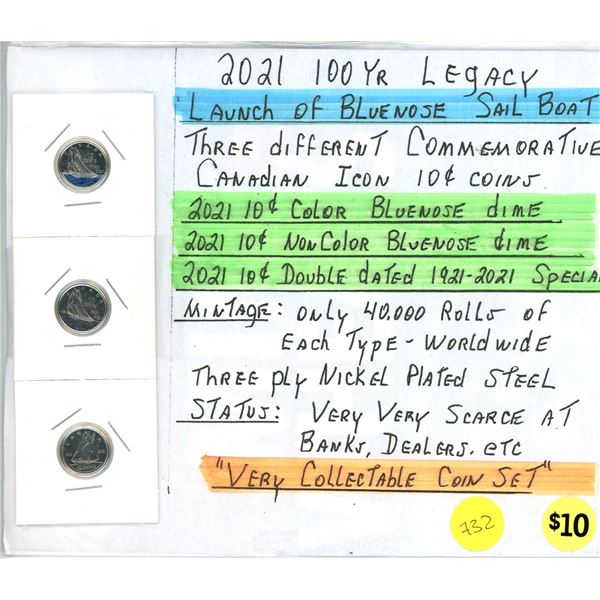 2021 100 YR LEGACY
LAUNCH OF BLUENOSE SAIL BOAT
THREE DIFFERENT COMMEMORATIVE
CANADIAN ICON 10¢ COINS
2021 10¢ COLOR BLUENOSE DIME
2021 10¢ NONCOLOR BLUENOSE DIME
2021 10¢ DOUBLE DATED 1921-2021 SPECIA
MINTAGE: ONLY 40,000 ROLLS OF
EACH TYPE - WORLDWIDE
THREE PLY NICKEL PLATED STEEL
STATUS: VERY VERY SCARCE AT
BANKS, DEALERS. ETC
"VERY COLLECTABLE COIN SET"
732
$10